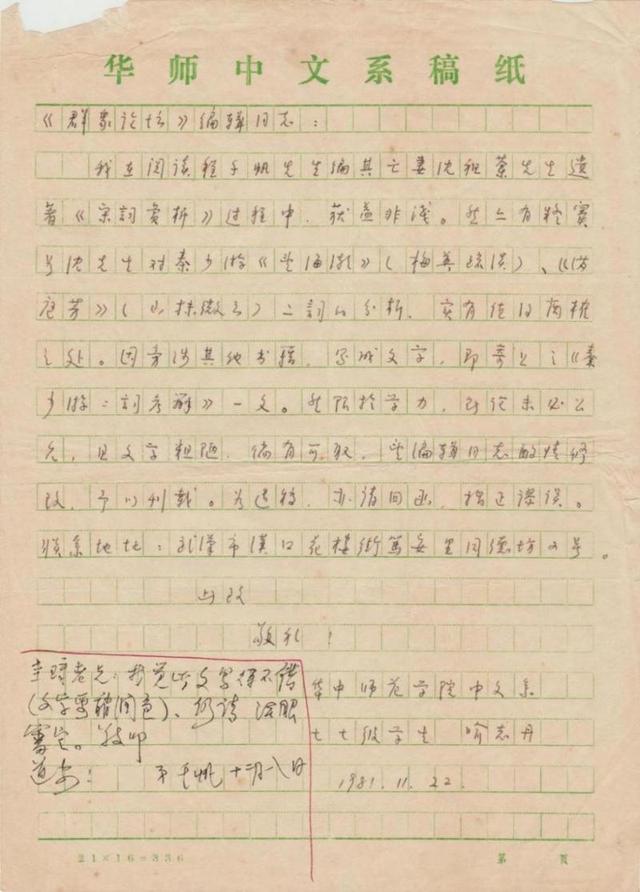 华师中文系稿纸
《群众论坛》编辑同志：
我在阅读程千帆先生编其亡妻沈祖棻先生遗
著《宋词赏析》过程中，获益非浅。然亦有将实
与沈先生对秦少游《望海潮》（梅英疏淡）、《满
庭芳》（山抹微云）二词的分析，实有值得商榷
之处。因旁涉其他书籍，写成文字，即寄上之《秦
少游二词考辨》一文。然限于学力，所论未必公
允，且文字粗陋，倘有可取，望编辑同志酌情修
改，予以刊载。若退稿，亦请回函，指正谬误。
联系地址：武汉市汉口花楼街笃安里同德坊4号。
此致
敬礼！
华中师范学院中文系
七七级学生 喻志丹
1981.11.22.
老兄：我觉此文写得不错
（文字要稍润色）、仍请
审定。敬叩
道安！ 弟千帆 十二月八日
21×16=336
第 页